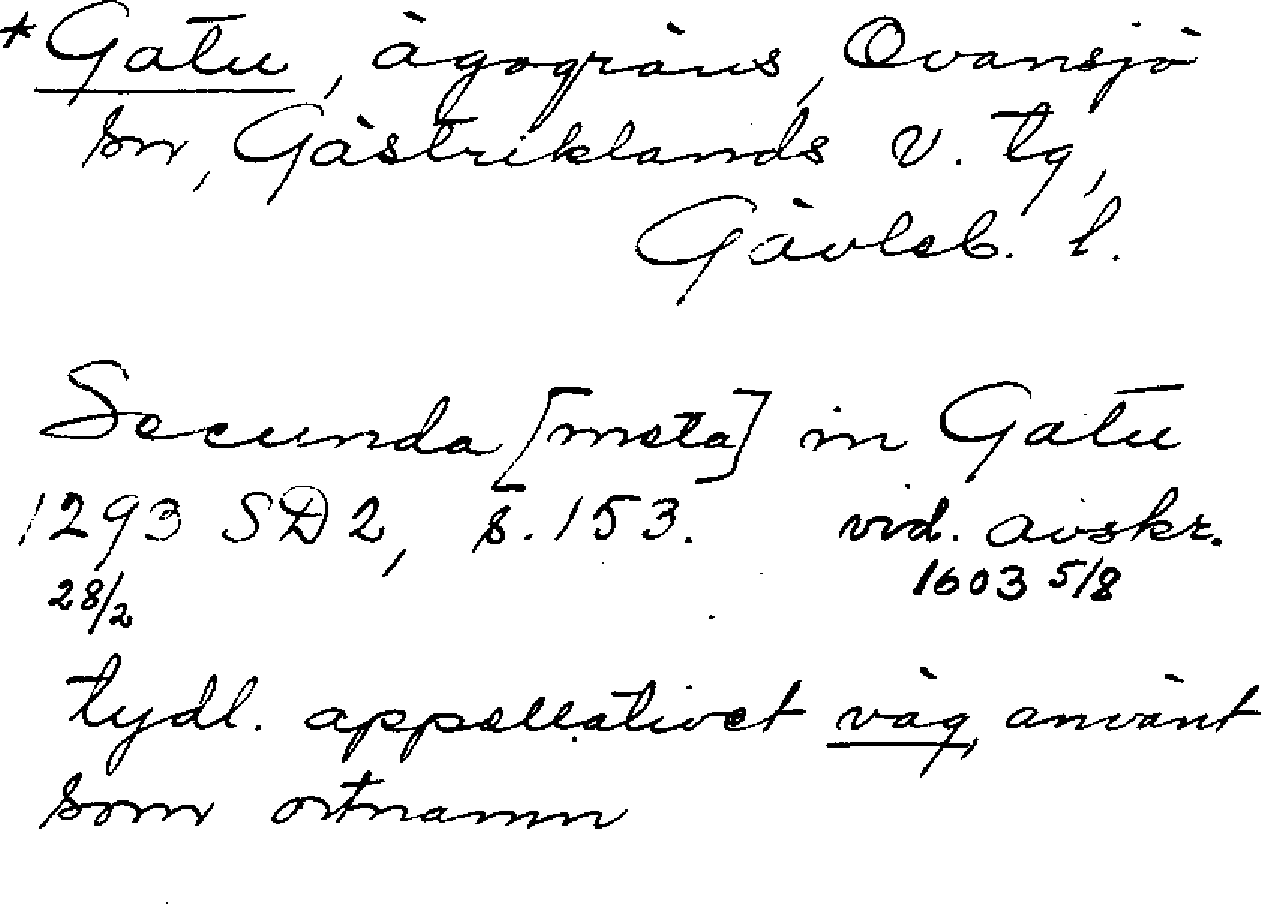 *Gatu, ägogräns, Ovansjö
sn, Gästriklands v. tg,
Gävleb. l.
Secunda [meta] in Gatu
1293 SD2, s. 153. vid. avskr.
28/2 1603 5/8
tydl. appellativet väg, använt
som ortnamn